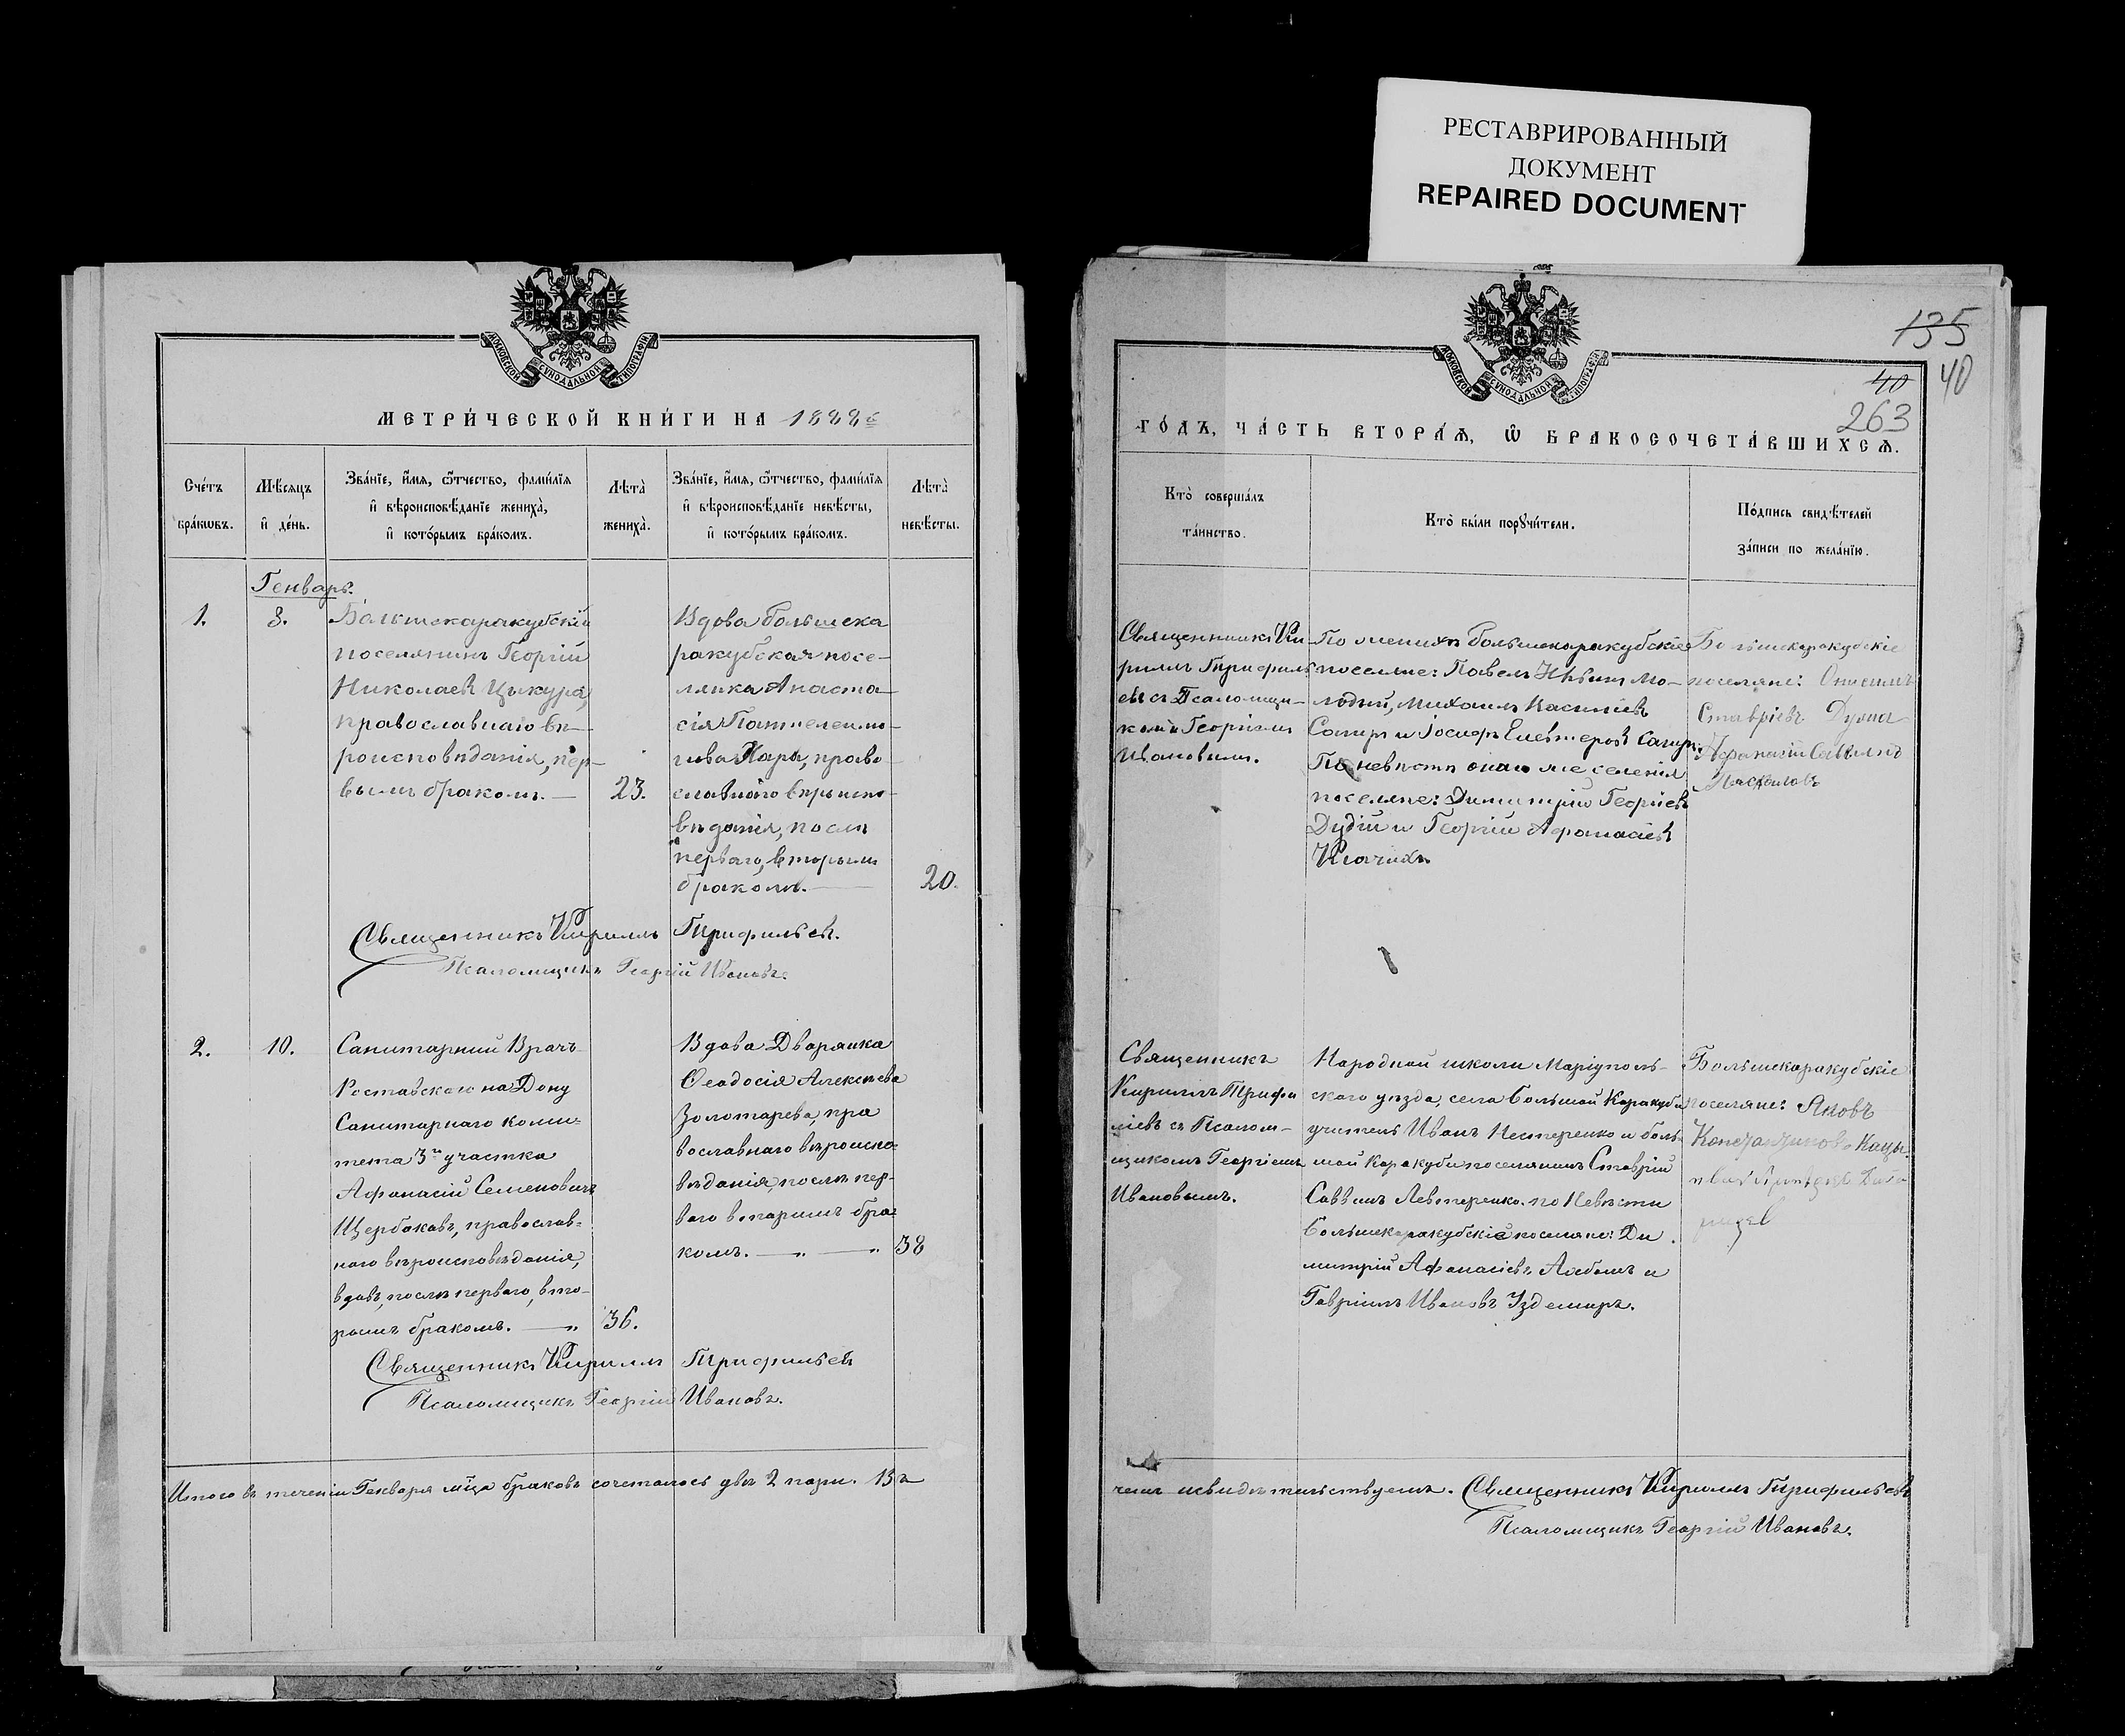 РЕСТАВРИРОВАННЫЙ
ДОКУМЕНТ
REPAIRED DOCUMENT
МОСКОВСКОЙ СѴНОДАЛЬНОЙ ТИПОГРАФІИ
МЕТРИ́ЧЕСКОЙ КНИ́ГИ НА 1888
Сче́тъ
бра́кωвъ.
Мѣ́сяцъ
и҆ де́нь.
Зва́нїе, и҆́мя, ѻ҆́тчество, фами́лїя
и҆ вѣроисповѣ́данїе жениха̀,
и҆ кото́рымъ бра́комъ.
Лѣта̀
жениха̀.
Зва́нїе, и҆́мя, ѻ҆́тчество, фами́лїя
и҆ вѣроисповѣ́данїе невѣ́сты,
и҆ кото́рымъ бра́комъ.
Лѣта̀
невѣ́сты.
Генварь.
1.
8.
Большекаракубскій
поселянинъ Георгій
Николаевъ Цыкура,
православнаго вѣ-
роисповѣданія, пер-
вымъ бракомъ.
23.
Вдова большека
ракубская посе-
лянка Анаста-
сія Пантелеимо-
нова Хара, право-
славнаго вѣроиспо-
вѣданія, послѣ
перваго, вторымъ
бракомъ.
20.
Священникъ Кириллъ Трифильевъ.
Псаломщикъ Георгій Ивановъ.
2.
10.
Санитарный Врачъ
Ростовскаго на Дону
Санитарнаго коми-
тета 3го участка
Афанасій Семеновичъ
Щербаковъ, православ-
наго вѣроисповѣданія,
вдовъ, послѣ перваго, вто-
рымъ бракомъ.
36.
Вдова Дворянка
Ѳеодосія Алексѣева
Золотарева, пра
вославнаго вѣроиспо-
вѣданія, послѣ пер-
ваго вторымъ бра-
комъ.
38
Священникъ Кириллъ Трифильевъ
Псаломщикъ Георгій Ивановъ.
Итого въ теченіи Генваря мца браковъ сочеталось двѣ 2 пары. Въ
135
40
40
263
МОСКОВСКОЙ СѴНОДАЛЬНОЙ ТИПОГРАФІИ
ГО́ДЪ, ЧА́СТЬ ВТОРА́Я, Ѡ҆ БРАКОСОЧЕТА́ВШИХСЯ.
Кто̀ соверша́лъ
та́инство.
Кто̀ бы́ли порꙋчи́тели.
По́дпись свидѣ́телей
за́писи по жела́нїю.
Священникъ Ки
риллъ Трифиль
евъ съ Псаломщи-
комъ Георгіемъ
Ивановымъ.
По женихѣ большекаракубскіе
поселяне: Павелъ Мо-
лодый, Михаилъ Василіевъ
Сагиръ и Іосифъ Елевтеровъ Сагиръ.
По невѣстѣ онаго же селенія
поселяне: Димитрій Георгіевъ
Дудій и Георгій Афанасіевъ
Большекаракубскіе
поселяне: Онисимъ
Ставріевъ
Афанасій
Священникъ
Кириллъ Трифи
ліевъ съ Псалом-
щикомъ Георгіемъ
Ивановымъ.
Народной школы Маріуполь-
скаго уѣзда, села Большой Каракубы
учитель Иванъ Нестеренко и боль-
шой Каракубы поселянинъ Ставрій
Саввинъ Левтеренко. по Невѣсти
Большекаракубскіе поселяне: Ди
митрій Афанасіевъ и
Гавріилъ Ивановъ Уздемиръ.
Большекаракубскіе
поселяне: Яковъ
чемъ и свидѣтельствуемъ. Священникъ Кириллъ Трифильевъ
Псаломщикъ Георгій Ивановъ.